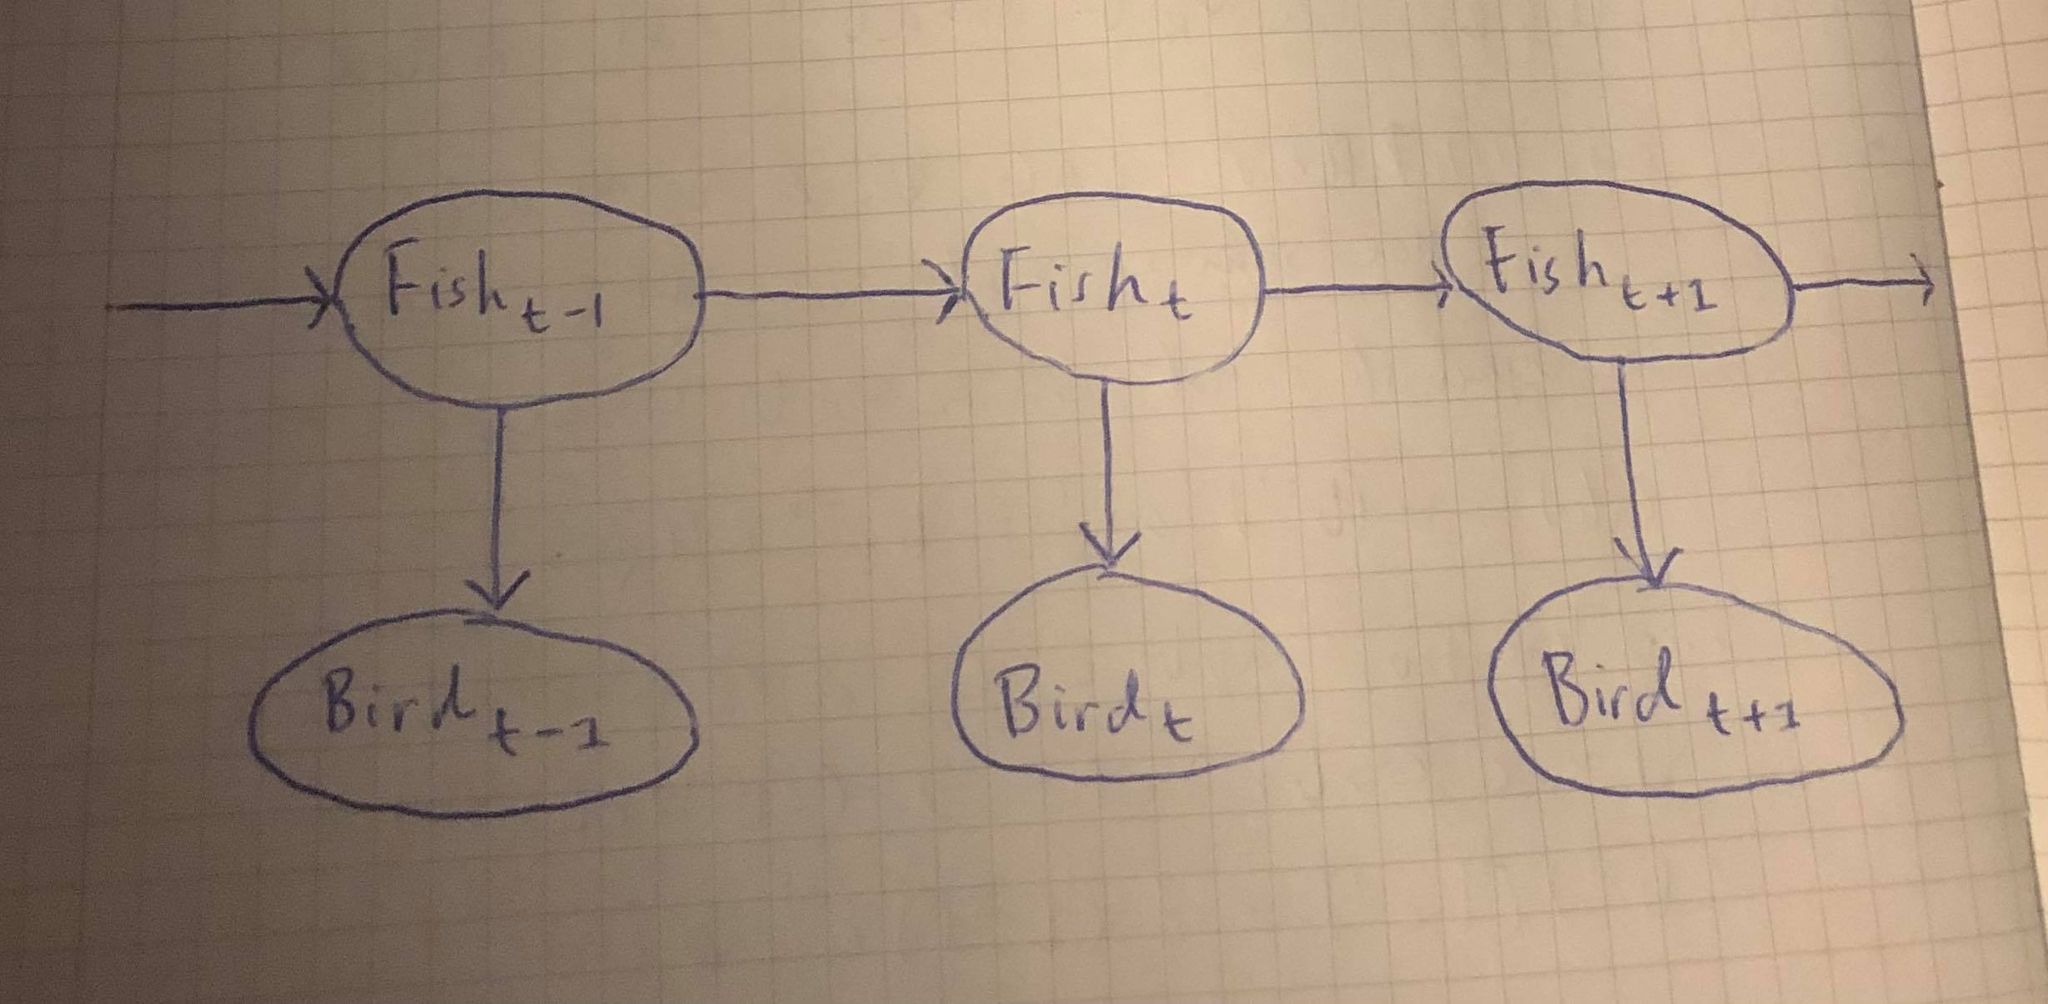 Fish t-1
Fish t
Fish t+1
Bird t-1
Bird t
Bird t+1